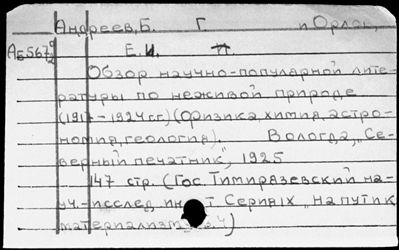 Андреев, Б. Г. и Орлов,
Аб567 Е.И.
Обзор научно-популярной лите-
ратуры по неживой природе
(1917-1924 г.г.) (физика, химия, астро-
номия, геология). Вологда, „Се-
верный печатник", 1925
147 стр. (Гос. Тимирязевский на-
уч.-исслед. ин-т Серия IX „На пути к
материализму"